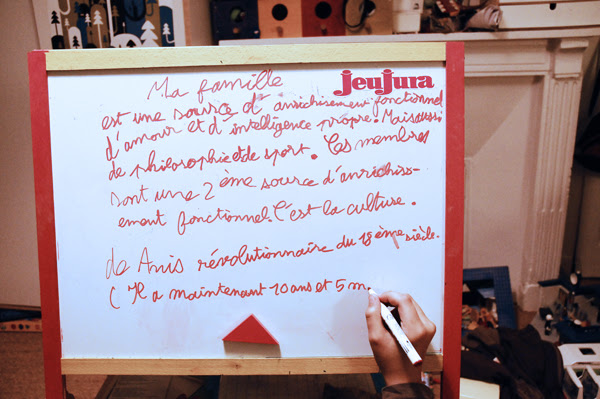 Ma famille
jeujura
est une source d'anrichisement fonctionnel
d'amour et d'intelligence propre. Mais aussi
de philosophie et de sport. Ces membres
sont une 2ème source d'anrichiss-
ement fonctionnel. C'est la culture.
de Anis révolutionnaire du 18ème siècle.
( Il a maintenant 10 ans et 5 m